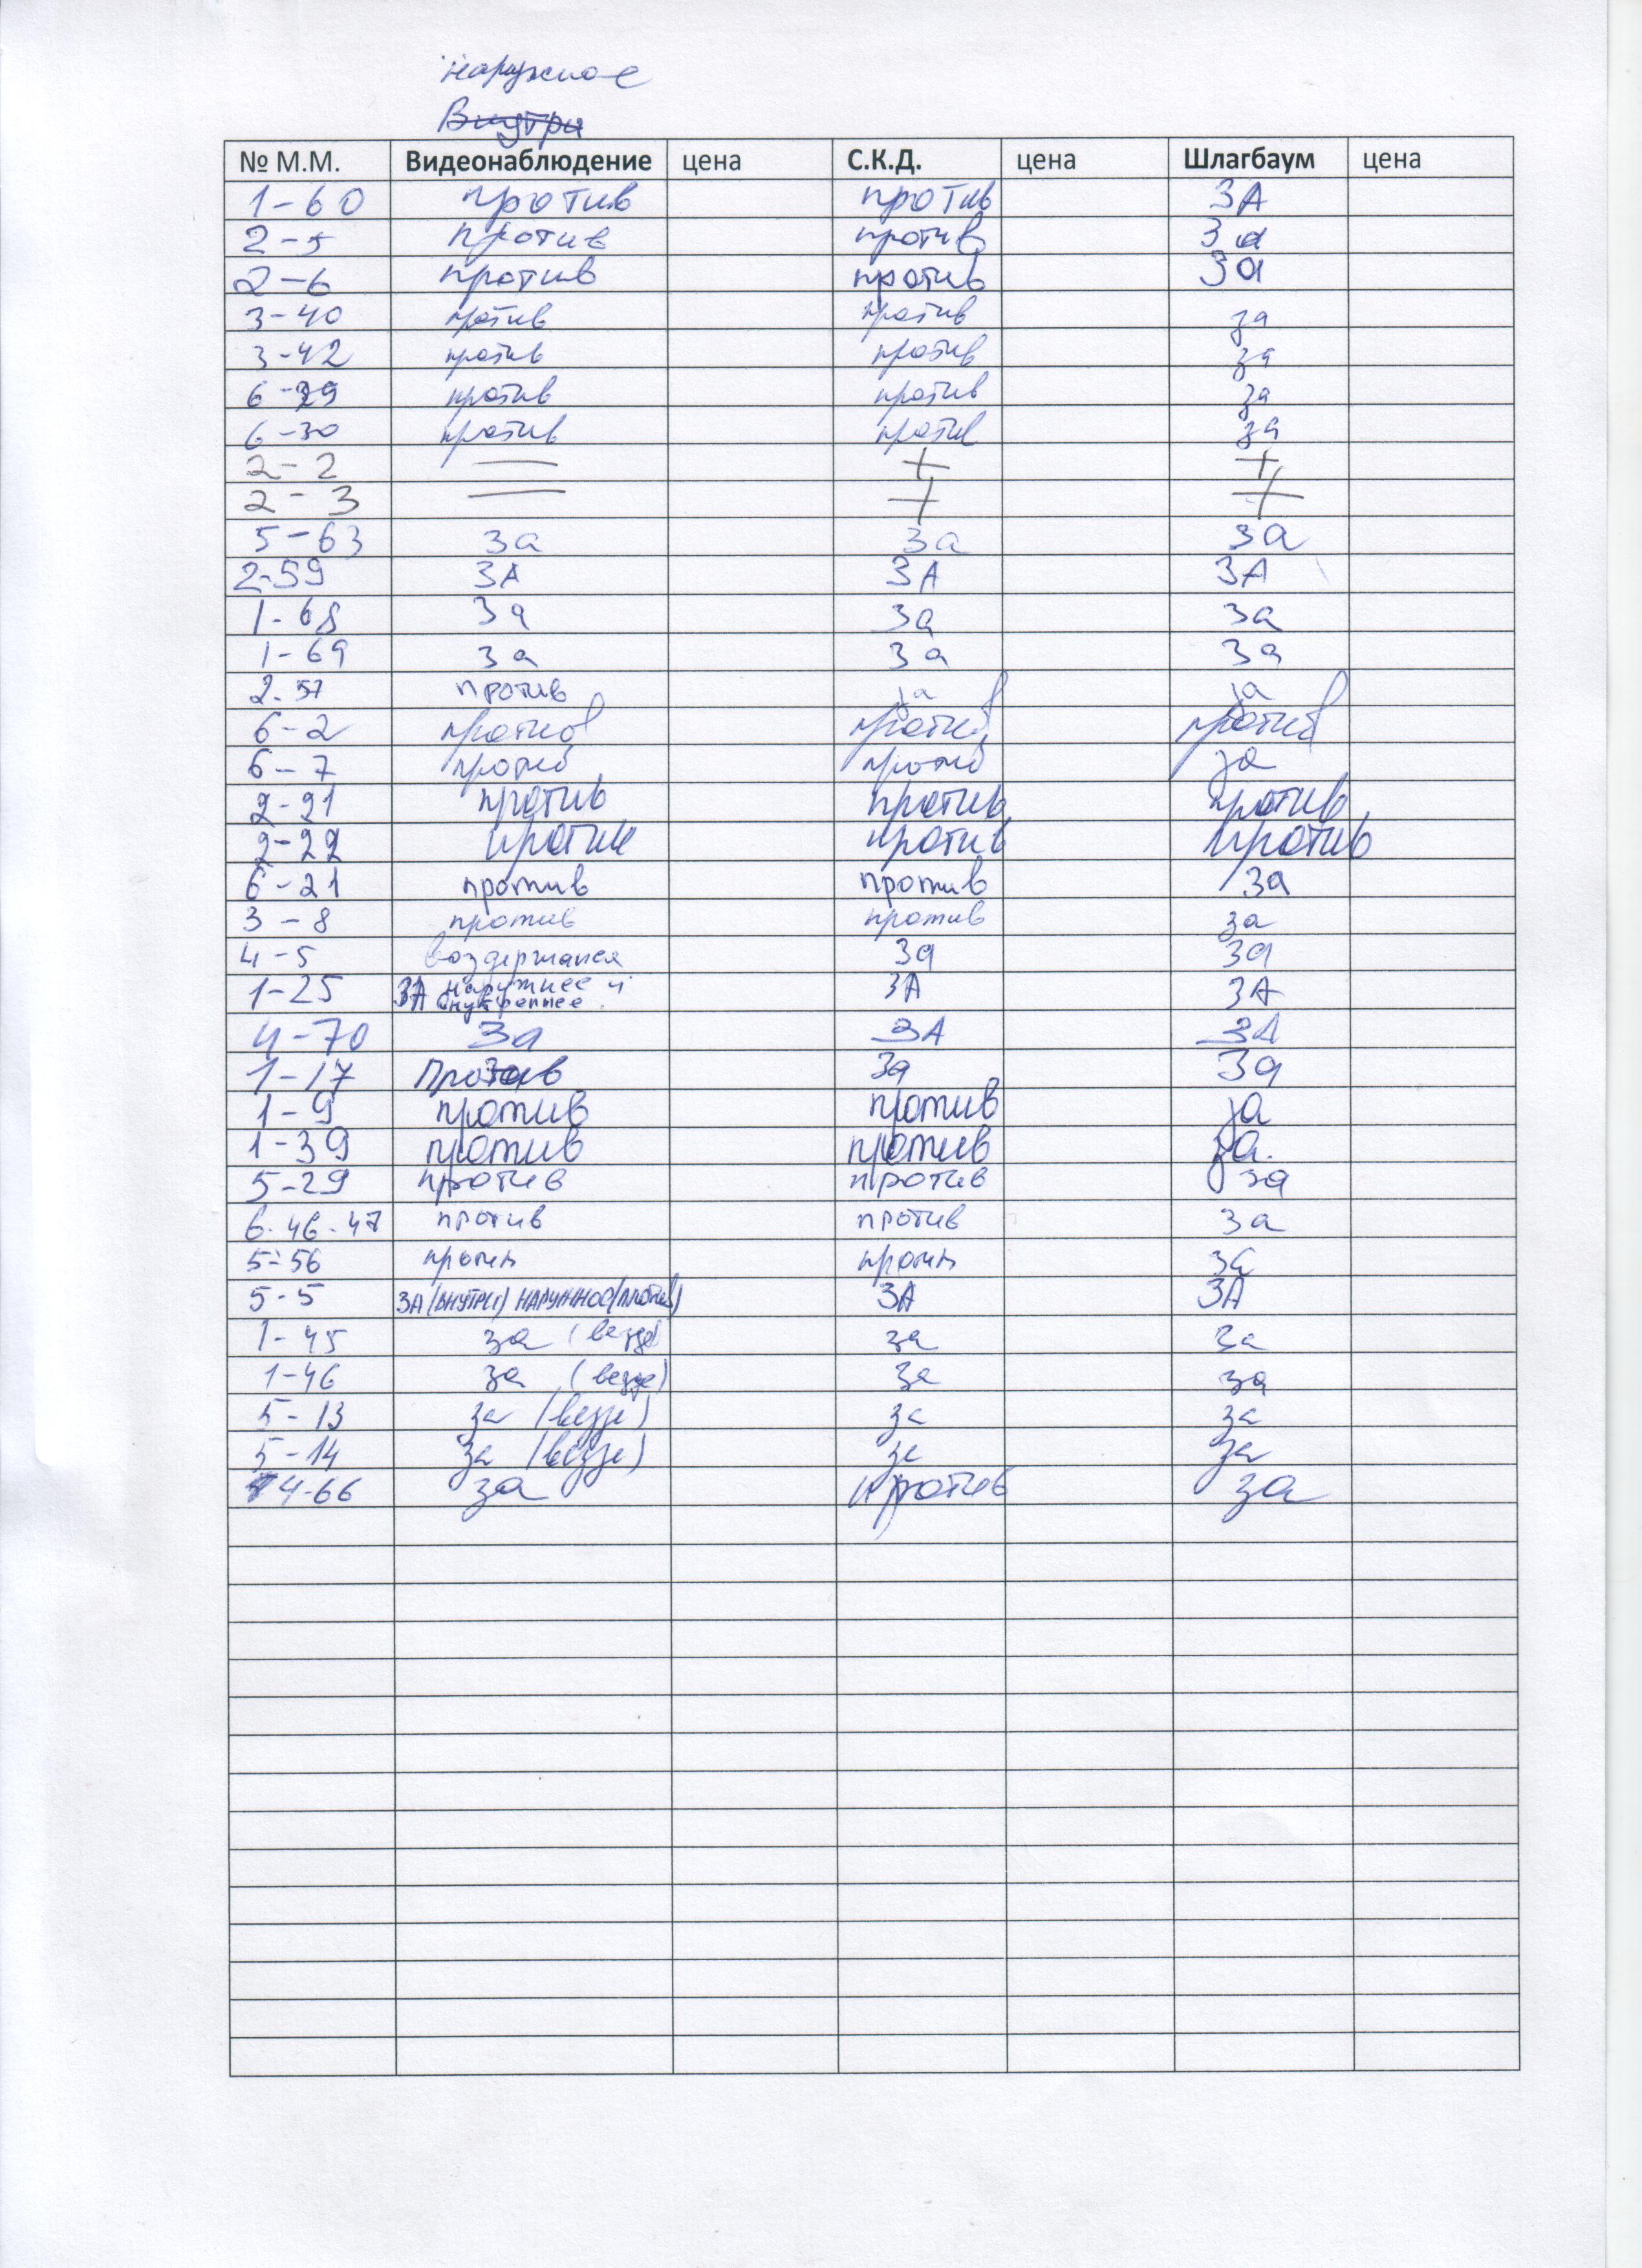 наружное
Внутри
№ М.М. Видеонаблюдение цена С.К.Д. цена Шлагбаум цена
1-60 против против ЗА
2-5 против против За
2-6 против против За
3-40 против против за
3-42 против против за
6-29 против против за
6-30 против против за
2-2 — + +
2-3 — + +
5-63 За За За
2-59 ЗА ЗА ЗА
1-68 За За За
1-69 За За За
2-57 против за за
6-2 против против против
6-7 против против за
2-21 против против против
2-22 против против против
6-21 против против за
3-8 против против за
4-5 воздержался За За
1-25 ЗА наружнее и внутреннее. ЗА ЗА
4-70 За ЗА ЗА
1-17 Против За За
1-9 против против за
1-39 против против за.
5-29 против против за
6-46-47 против против За
5-56 против против За
5-5 ЗА (ВНУТРИ) НАРУЖНОЕ (ПРОТИВ) ЗА ЗА
1-45 за (везде) за За
1-46 за (везде) за за
5-13 за (везде) за за
5-14 за (везде) за за
4-66 за против за